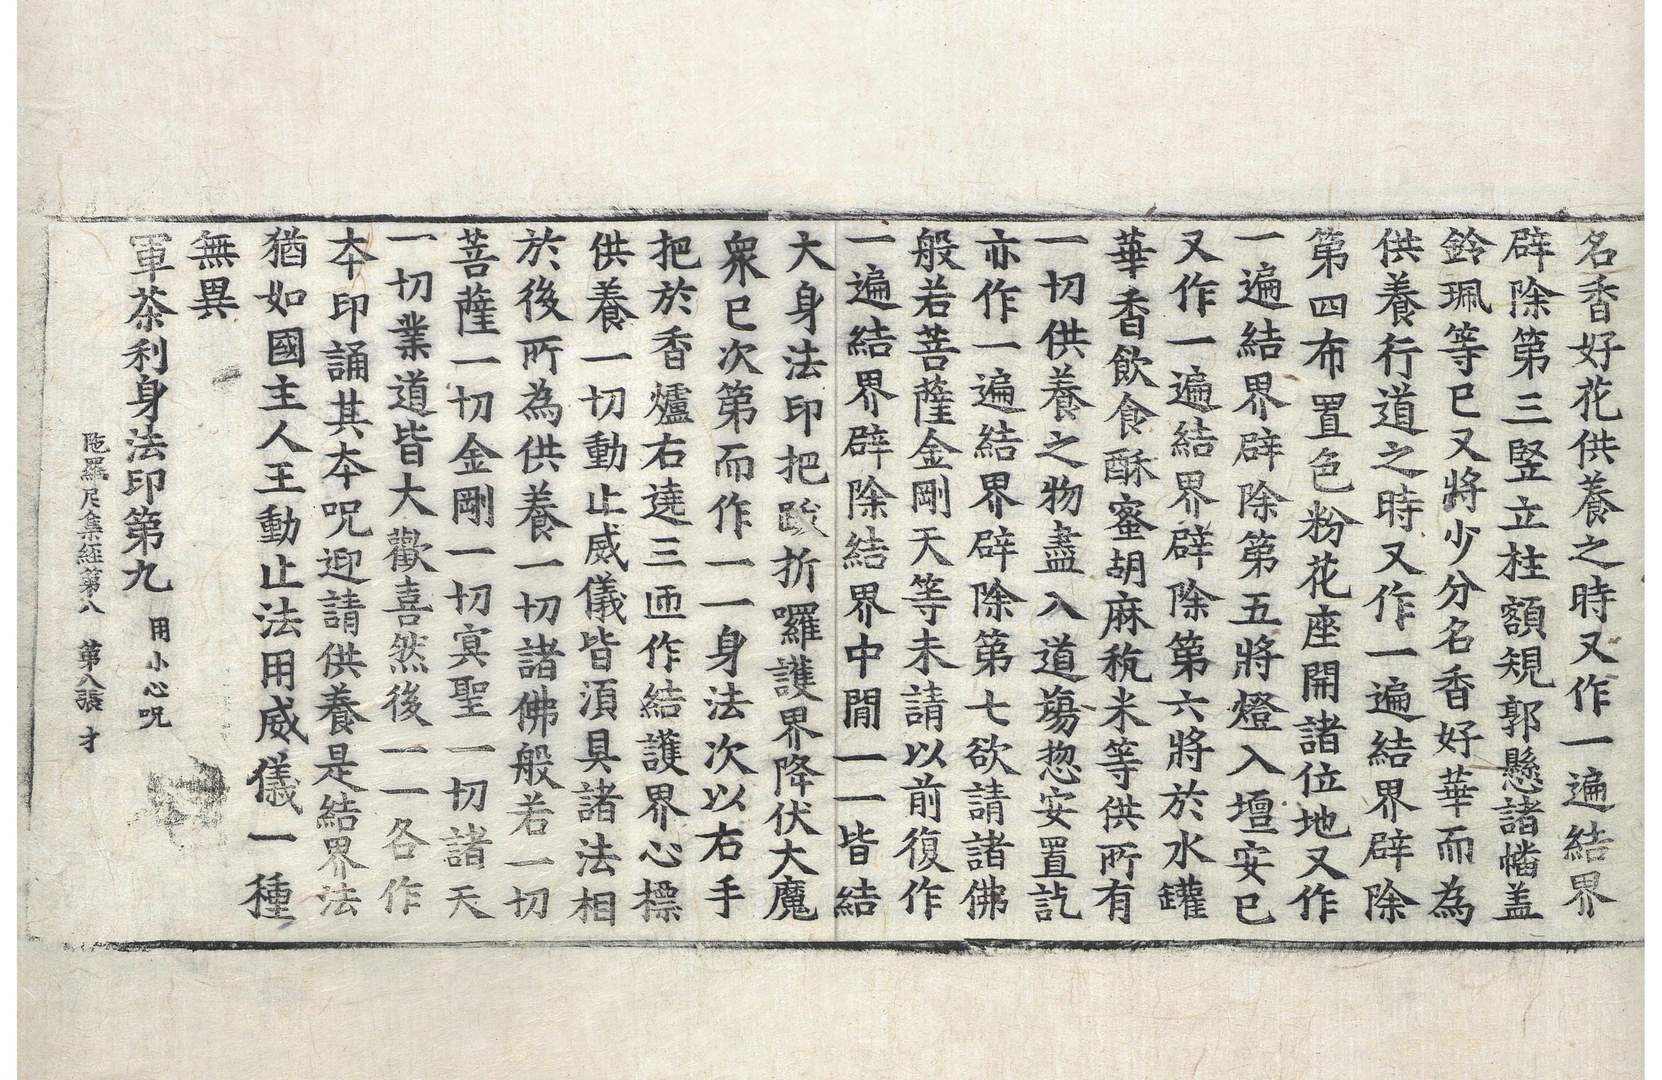 名香好花供養之時又作一遍結界
辟除第三竪立柱額規郭懸諸幡盖
鈴珮等已又將少分名香好華而為
供養行道之時又作一遍結界辟除
第四布置色粉花座開諸位地又作
一遍結界辟除第五將燈入壇安已
又作一遍結界辟除第六將於水罐
華香飮食酥蜜胡麻秔米等供所有
一切供養之物盡入道場惣安置訖
亦作一遍結界辟除第七欲請諸佛
般若菩薩金剛天等未請以前復作
一遍結界辟除結界中閒一一皆結
大身法印把跋折囉護界降伏大魔
衆已次第而作一一身法次以右手
把於香爐右遶三匝作結護界心標
供養一切動止威儀皆湏具諸法相
於後所為供養一切諸佛般若一切
菩薩一切金剛一切冥聖一切諸天
一切業道皆大歡喜然後一一各作
夲印誦其夲呪迎請供養是結界法
猶如國主人王動止法用威儀一種
無異
軍荼利身法印第九 用小心呪
陁羅尼集經第八 第八張 才